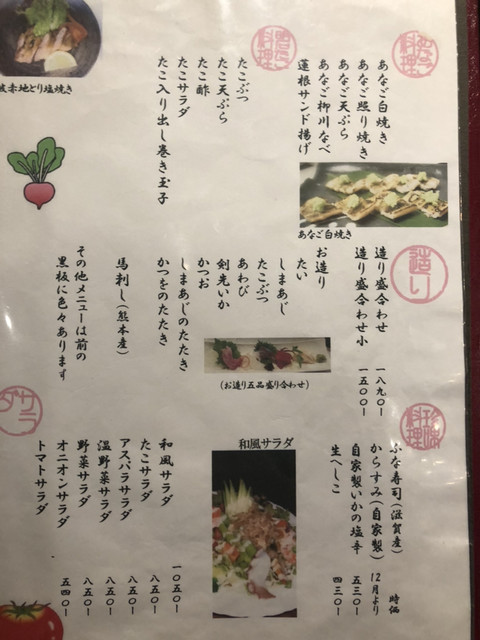 あなご料理
あなご白焼き
あなご照り焼き
あなご天ぷら
あなご柳川なべ
蓮根サンド揚げ
あなご白焼き
料理
たこぶつ
たこ天ぷら
たこ酢
たこサラダ
たこ入り出し巻き玉子
赤地どり塩焼き
造り
造り盛合わせ 一八九〇ー
造り盛合わせ小 一五〇〇ー
お造り
たい
しまあじ
たこぶつ
あわび
剣先いか
かつお
しまあじのたたき
かつをのたたき
馬刺し(熊本産)
その他メニューは前の
黒板に色々あります
(お造り五品盛り合わせ)
珍味料理
ふな寿司(滋賀産) 時価
からすみ(自家製) 12月より
自家製いかの塩辛 五三〇ー
生へしこ 四三〇ー
和風サラダ
サラダ
和風サラダ 一〇五〇ー
たこサラダ 八五〇ー
アスパラサラダ 八五〇ー
温野菜サラダ 八五〇ー
野菜サラダ 八五〇ー
オニオンサラダ 五四〇ー
トマトサラダ 五四〇ー